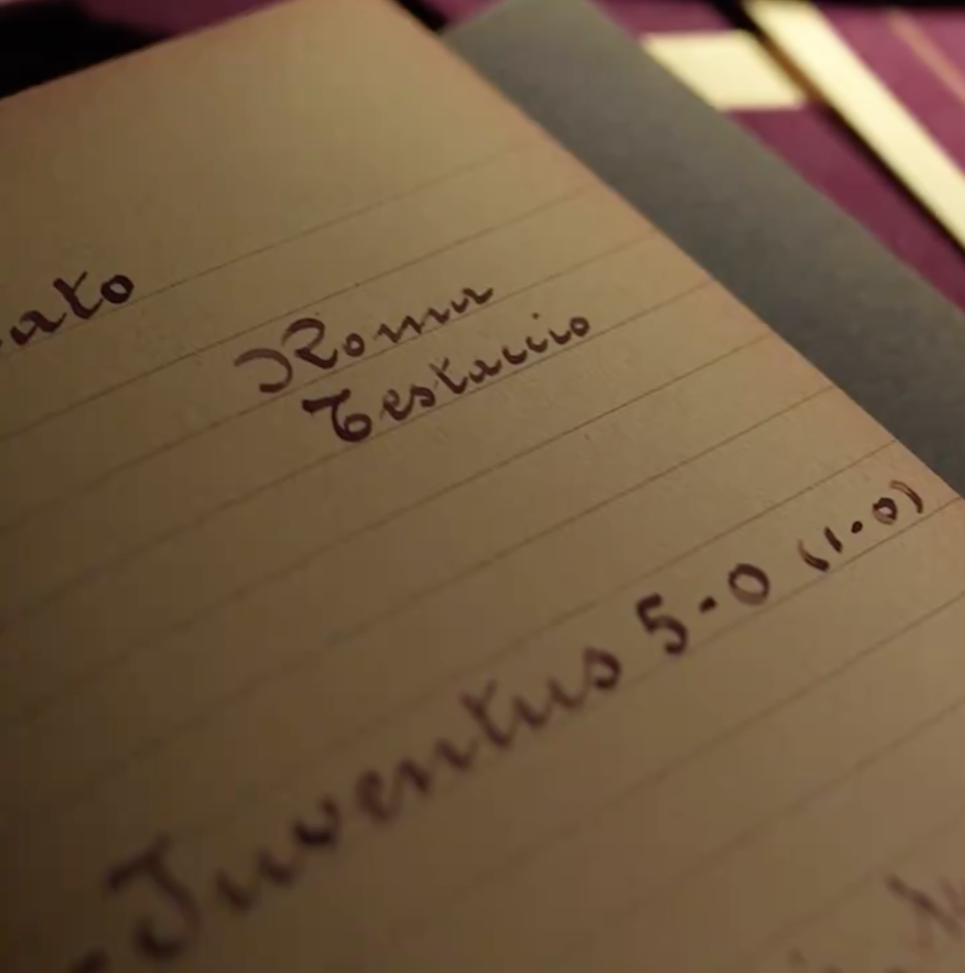 ato
Roma
Testaccio
- Juventus 5-0 (1-0)